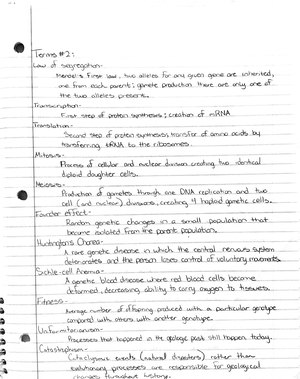 Terms #2:
Law of segregation-
Mendel's First law. two alleles for any given gene are inherited,
one from each parent; gamete production there are only one of
the two alleles present.
Transcription-
First step of protein synthesis; creation of mRNA
Translation-
Second step of protein synthesis; transfer of amino acids by
transferring tRNA to the ribosomes.
Mitosis-
Process of cellular and nuclear division creating two identical
diploid daughter cells.
Meiosis-
Production of gametes through one DNA replication and two
cell (and nuclear) divisions, creating 4 haploid genetic cells.
Founder effect-
Random genetic changes in a small population that
become isolated from the parent population.
Huntington's Chorea-
A rare genetic disease in which the central nervous system
deteriorates and the person loses control of voluntary movements.
Sickle-cell Anemia-
A genetic blood disease where red blood cells become
deformed, decreasing ability to carry oxygen to tissues.
Fitness-
Average number of offspring produced with a particular genotype
compared with others with another genotype.
Uniformitarianism-
Processes that happened in the geologic past still happen today.
Catastrophism-
Cataclysmic events (natural disasters) rather than
evolutionary processes are responsible for geological
changes throughout history.